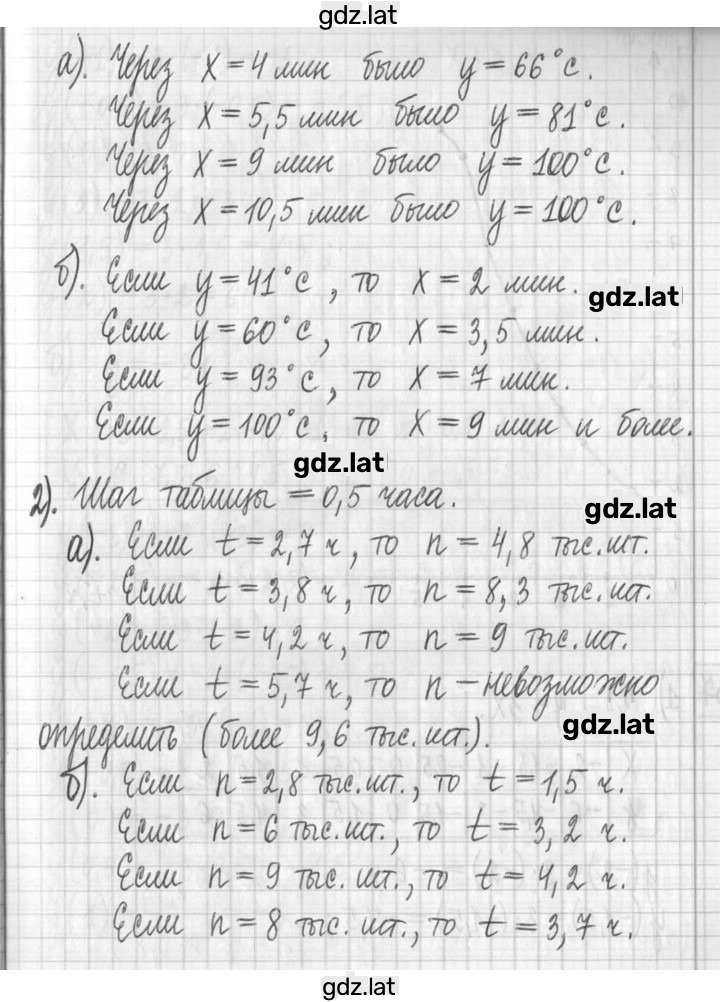 gdz.lat
а). Через x = 4 мин было y = 66°с.
Через x = 5,5 мин было y = 81°с.
Через x = 9 мин было y = 100°с.
Через x = 10,5 мин было y = 100°с.
б). Если y = 41°с, то x = 2 мин.
gdz.lat
Если y = 60°с, то x = 3,5 мин.
Если y = 93°с, то x = 7 мин.
Если y = 100°с, то x = 9 мин и более.
gdz.lat
2). Шаг таблицы = 0,5 часа.
gdz.lat
а). Если t = 2,7 ч, то n = 4,8 тыс.шт.
Если t = 3,8 ч, то n = 8,3 тыс.шт.
Если t = 4,2 ч, то n = 9 тыс.шт.
Если t = 5,7 ч, то n – невозможно
gdz.lat
определить (более 9,6 тыс.шт.).
б). Если n = 2,8 тыс.шт., то t = 1,5 ч.
Если n = 6 тыс.шт., то t = 3,2 ч.
Если n = 9 тыс.шт., то t = 4,2 ч.
Если n = 8 тыс.шт., то t = 3,7 ч.
gdz.lat